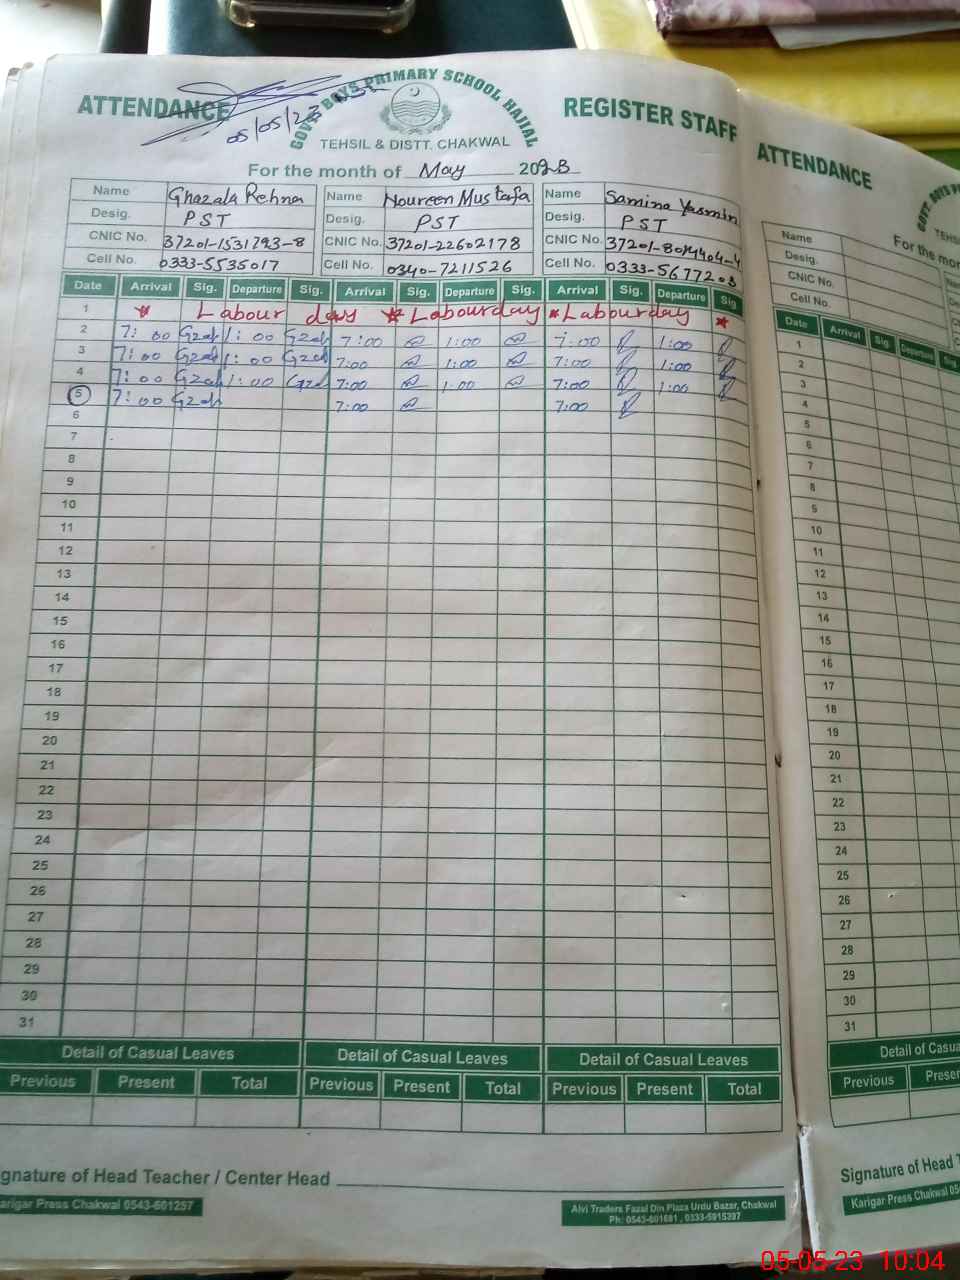 ATTENDANCE
05/05/23
GOVT. BOYS PRIMARY SCHOOL HAJJAL
TEHSIL & DISTT. CHAKWAL
REGISTER STAFF
For the month of May 2023
Name Ghazala Rehna Name Noureen Mustafa Name Samina Yasmin
Desig. PST Desig. PST Desig. PST
CNIC No. 37201-1531793-8 CNIC No. 37201-22602178 CNIC No.
Cell No. 0333-5535017 Cell No. 0340-7211526 Cell No. 0333-5677203
Date Arrival Sig. Departure Sig. Arrival Sig. Departure Sig. Arrival Sig. Departure Sig
1 * Labour day * Labourday * Labourday *
2 7:00 1:00 7:00 1:00 7:00 1:00
3 7:00 1:00 7:00 1:00 7:00 1:00
4 7:00 1:00 7:00 1:00 7:00 1:00
5 7:00 7:00 7:00
6
7
8
9
10
11
12
13
14
15
16
17
18
19
20
21
22
23
24
25
26
27
28
29
30
31
Detail of Casual Leaves Detail of Casual Leaves Detail of Casual Leaves
Previous Present Total Previous Present Total Previous Present Total
gnature of Head Teacher / Center Head
Karigar Press Chakwal 0543-601257
Alvi Traders Fazal Din Plaza Urdu Bazar, Chakwal
Ph: 0543-601681 , 0333-5915397
ATTENDANCE
GOVT. BOYS P
TEHS
For the mon
Name
Desig.
CNIC No.
Cell No.
Date Arrival Sig. Departure Sig
1
2
3
4
5
6
7
8
9
10
11
12
13
14
15
16
17
18
19
20
21
22
23
24
25
26
27
28
29
30
31
Detail of Casua
Previous Presen
Signature of Head T
Karigar Press Chakwal 05
05-05-23 10:04